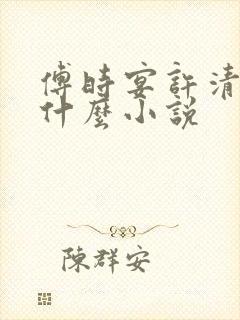 傅時宴許清
什麼小說
陳群安